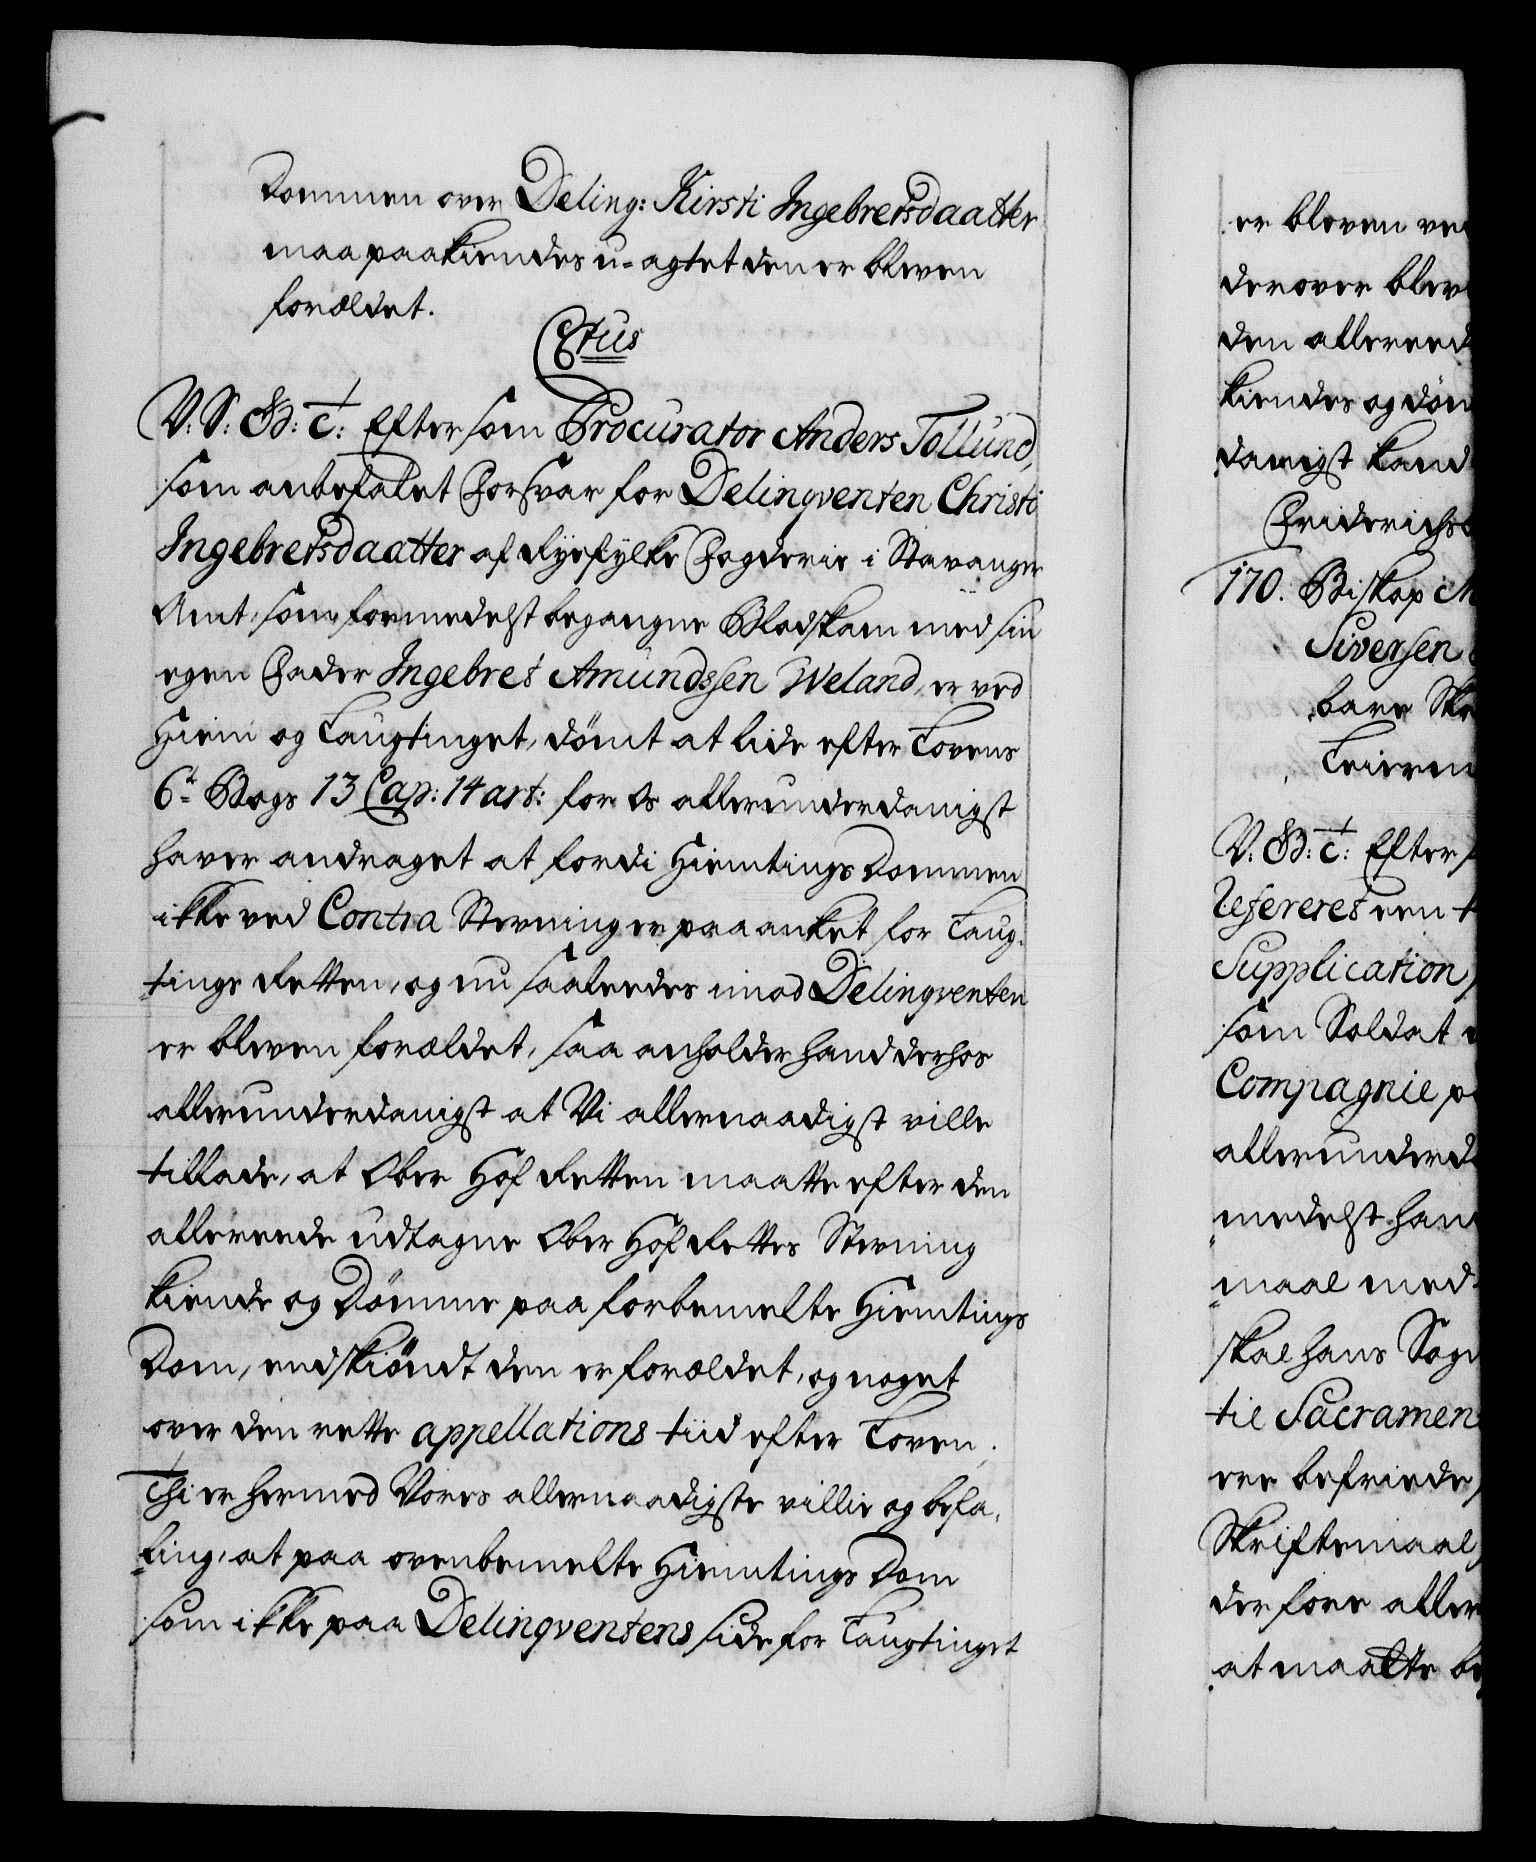 Dommen over Delinq: Kirsti Ingebretsdaatter
maa paakiendes u-agtet den er bleven
forældet.
C6tus
V: S: G: B: c: Eftersom Procurator Anders Tollund,
som anbefalet Forsvar for Delinqventen Christi
Ingebretsdaatter af Ryefylke Fogderie i Stavanger
Amt, som formedelst begangne Blodskam med sin
egen Fader Ingebret Amundssen Weland, er ved
Hiem og Laugtinget, dömt at lide efter Lovens
6te Bogs 13 Cap: 14 art: for Os allerunderdanigst
haver andraget at fordi Hiemtings Dommen
ikke ved Contra Stevning er paaanket for Laug-
tings Retten, og nu saaleedes imod Delinqventen
er bleven forældet, saa anholder hand derhos
allerunderdanigst at Vi allernaadigst ville
tillade, at Ober Hof Retten maatte efter den
allereede udtagne Ober Hof Rettes Stevning
kiende og Dömme paa forbemelte Hiemtings
Dom, endskiöndt den er forældet, og noget
over den rette appellations tiid efter Loven;
Thi er hermed Vores allernaadigste villie og befa-
ling, at paa ovenbemelte Hiemtings Dom
som ikke paa Delinqventens side for Laugtinget
er bleven
derover
den
kiendes og
danigst kand
170. Biskop
Siversen
bare
V: G: B: c: Efter
Refereret een
Supplication
som Soldat
Compagnie
medelst
maal med
skal hans
til
ere befriede
Skriftemaal
derfore
at maatte